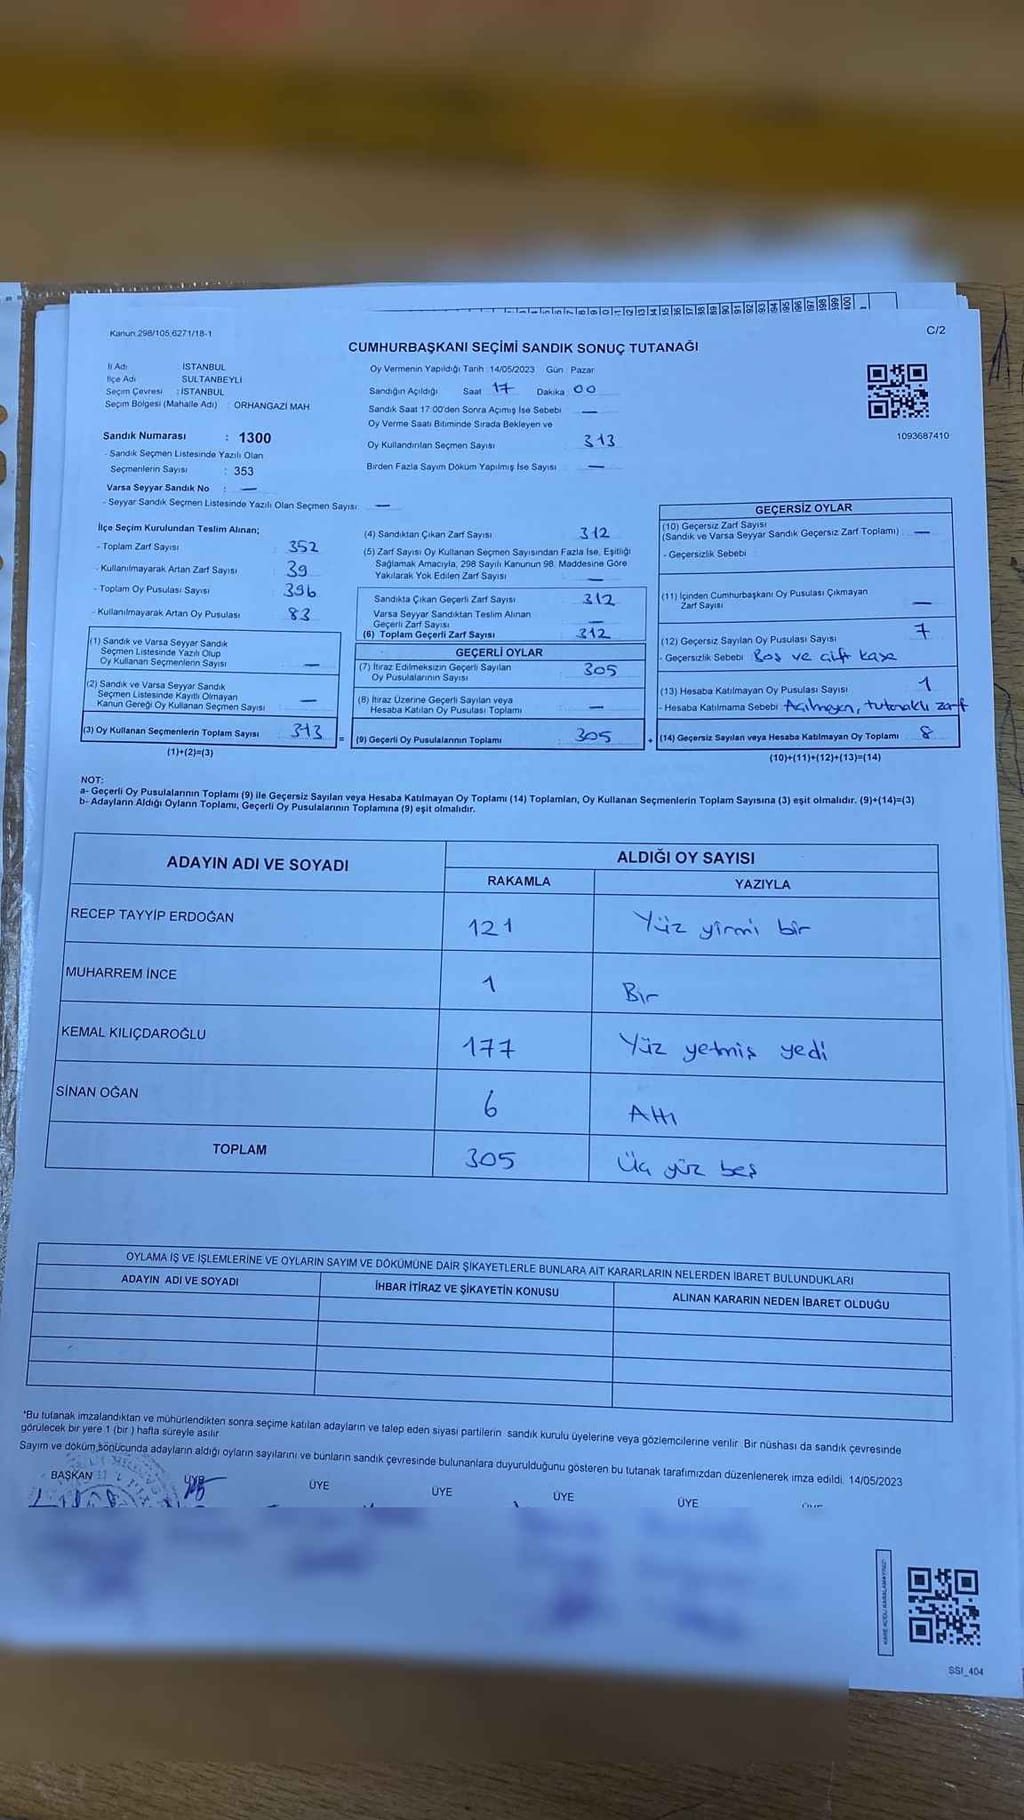 Kanun 298/105,6271/18-1
C/2
CUMHURBAŞKANI SEÇİMİ SANDIK SONUÇ TUTANAĞI
İl Adı : İSTANBUL
İlçe Adı : SULTANBEYLİ
Seçim Çevresi : İSTANBUL
Seçim Bölgesi (Mahalle Adı) : ORHANGAZİ MAH
Sandık Numarası : 1300
- Sandık Seçmen Listesinde Yazılı Olan
Seçmenlerin Sayısı : 353
Varsa Seyyar Sandık No : —
- Seyyar Sandık Seçmen Listesinde Yazılı Olan Seçmen Sayısı: —
Oy Vermenin Yapıldığı Tarih : 14/05/2023 Gün : Pazar
Sandığın Açıldığı Saat 17 Dakika 00
Sandık Saat 17:00'den Sonra Açımış İse Sebebi —
Oy Verme Saati Bitiminde Sırada Bekleyen ve
Oy Kullandırılan Seçmen Sayısı 313
Birden Fazla Sayım Döküm Yapılmış İse Sayısı —
1093687410
İlçe Seçim Kurulundan Teslim Alınan;
- Toplam Zarf Sayısı 352
- Kullanılmayarak Artan Zarf Sayısı 39
- Toplam Oy Pusulası Sayısı 396
- Kullanılmayarak Artan Oy Pusulası 83
(1) Sandık ve Varsa Seyyar Sandık
Seçmen Listesinde Yazılı Olup
Oy Kullanan Seçmenlerin Sayısı —
(2) Sandık ve Varsa Seyyar Sandık
Seçmen Listesinde Kayıtlı Olmayan
Kanun Gereği Oy Kullanan Seçmen Sayısı —
(3) Oy Kullanan Seçmenlerin Toplam Sayısı 313 =
(1)+(2)=(3)
(4) Sandıktan Çıkan Zarf Sayısı 312
(5) Zarf Sayısı Oy Kullanan Seçmen Sayısından Fazla İse, Eşitliği
Sağlamak Amacıyla, 298 Sayılı Kanunun 98. Maddesine Göre
Yakılarak Yok Edilen Zarf Sayısı —
Sandıkta Çıkan Geçerli Zarf Sayısı 312
Varsa Seyyar Sandıktan Teslim Alınan
Geçerli Zarf Sayısı —
(6) Toplam Geçerli Zarf Sayısı 312
GEÇERLİ OYLAR
(7) İtiraz Edilmeksizin Geçerli Sayılan
Oy Pusulalarının Sayısı 305
(8) İtiraz Üzerine Geçerli Sayılan veya
Hesaba Katılan Oy Pusulası Toplamı —
(9) Geçerli Oy Pusulalarının Toplamı 305 +
GEÇERSİZ OYLAR
(10) Geçersiz Zarf Sayısı
(Sandık ve Varsa Seyyar Sandık Geçersiz Zarf Toplamı) —
- Geçersizlik Sebebi
(11) İçinden Cumhurbaşkanı Oy Pusulası Çıkmayan
Zarf Sayısı —
(12) Geçersiz Sayılan Oy Pusulası Sayısı 7
- Geçersizlik Sebebi Boş ve çift kaşe
(13) Hesaba Katılmayan Oy Pusulası Sayısı 1
- Hesaba Katılmama Sebebi Açılmayan, tutanaklı zarf
(14) Geçersiz Sayılan veya Hesaba Katılmayan Oy Toplamı 8
(10)+(11)+(12)+(13)=(14)
NOT:
a- Geçerli Oy Pusulalarının Toplamı (9) ile Geçersiz Sayılan veya Hesaba Katılmayan Oy Toplamı (14) Toplamları, Oy Kullanan Seçmenlerin Toplam Sayısına (3) eşit olmalıdır. (9)+(14)=(3)
b- Adayların Aldığı Oyların Toplamı, Geçerli Oy Pusulalarının Toplamına (9) eşit olmalıdır.
ADAYIN ADI VE SOYADI ALDIĞI OY SAYISI
RAKAMLA YAZIYLA
RECEP TAYYİP ERDOĞAN 121 Yüz yirmi bir
MUHARREM İNCE 1 Bir
KEMAL KILIÇDAROĞLU 177 Yüz yetmiş yedi
SİNAN OĞAN 6 Altı
TOPLAM 305 Üç yüz beş
OYLAMA İŞ VE İŞLEMLERİNE VE OYLARIN SAYIM VE DÖKÜMÜNE DAİR ŞİKAYETLERLE BUNLARA AİT KARARLARIN NELERDEN İBARET BULUNDUKLARI
ADAYIN ADI VE SOYADI İHBAR İTİRAZ VE ŞİKAYETİN KONUSU ALINAN KARARIN NEDEN İBARET OLDUĞU
*Bu tutanak imzalandıktan ve mühürlendikten sonra seçime katılan adayların ve talep eden siyasi partilerin sandık kurulu üyelerine veya gözlemcilerine verilir. Bir nüshası da sandık çevresinde
görülecek bir yere 1 (bir ) hafta süreyle asılır
Sayım ve döküm sonucunda adayların aldığı oyların sayılarını ve bunların sandık çevresinde bulunanlara duyurulduğunu gösteren bu tutanak tarafımızdan düzenlenerek imza edildi. 14/05/2023
BAŞKAN ÜYE ÜYE ÜYE ÜYE ÜYE
SSI_404